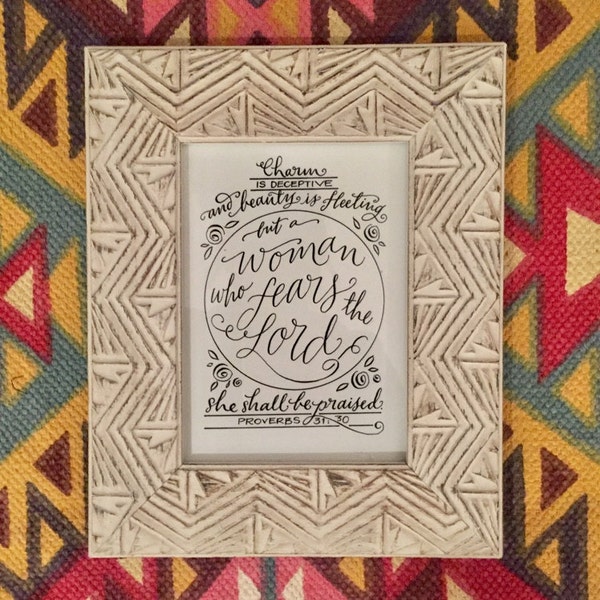 Charm
IS DECEPTIVE
and beauty is fleeting
but a
woman
who fears the
Lord
she shall be praised.
PROVERBS 31:30